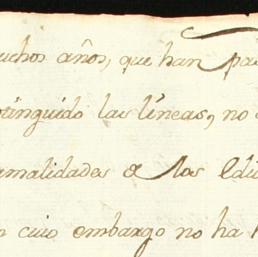 uchos años, que han pa
tinguido las líneas, no
malidades a los Edi
cuio embargo no ha